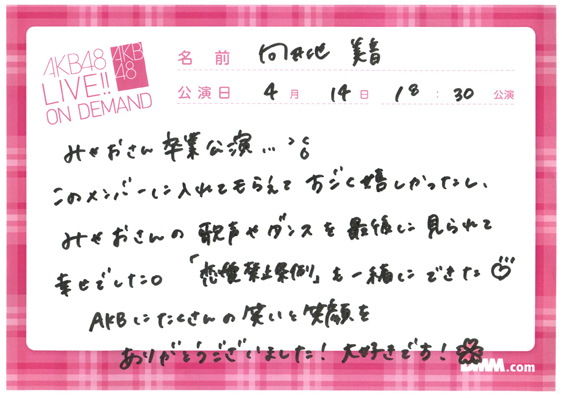 AKB48
LIVE!!
ON DEMAND
AKB
48
名前 向井地 美音
公演日 4月 14日 18:30 公演
みゃおさん卒業公演...
このメンバーに入れてもらえてすごく嬉しかったし、
みゃおさんの歌声やダンスを最後に見られて
幸せでした。「恋愛禁止条例」も一緒にできた♡
AKBにたくさんの笑いと笑顔を
ありがとうございました！大好きです！
DMM.com